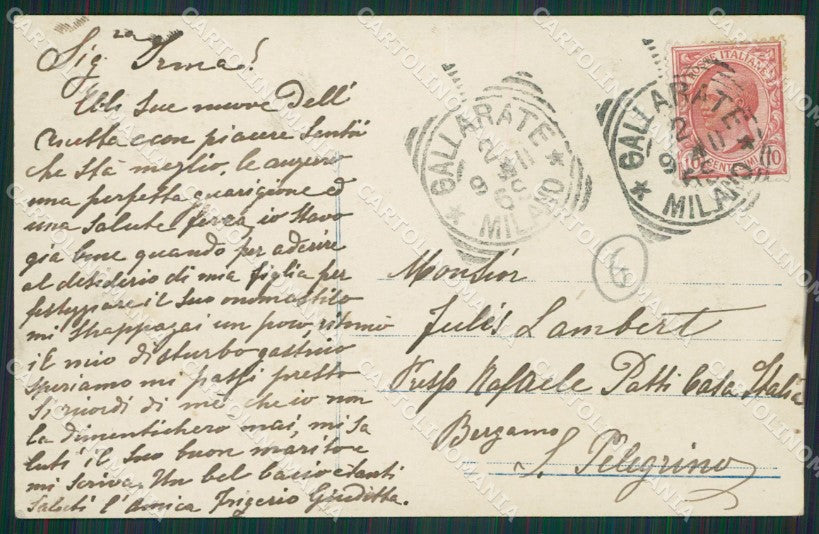 Sig.ra Irma!
Ebbi sue nuove dell'
e con piacere
che stà meglio, le auguro
una perfetta guarigione ed
una salute ferrea, io stavo
già bene quando per aderire
al desiderio di mia figlia per
il suo onomastico
mi strappazai un poco, ritornò
il mio disturbo gastrico
speriamo mi passi presto
Si ricordi di me, che io non
la dimentichero mai, mi sa
luti il suo buon marito e
mi scriva. Un bel bacio e tanti
saluti l'amica Frigerio Giuditta.
POSTE ITALIANE
GALLARATE
MILANO
GALLARATE
MILANO
6
Monsior
Julis Lambert
Presso Rafaele Patti Casa Italia
Bergamo
S. Pelegrino
CARTOLINOMANIA